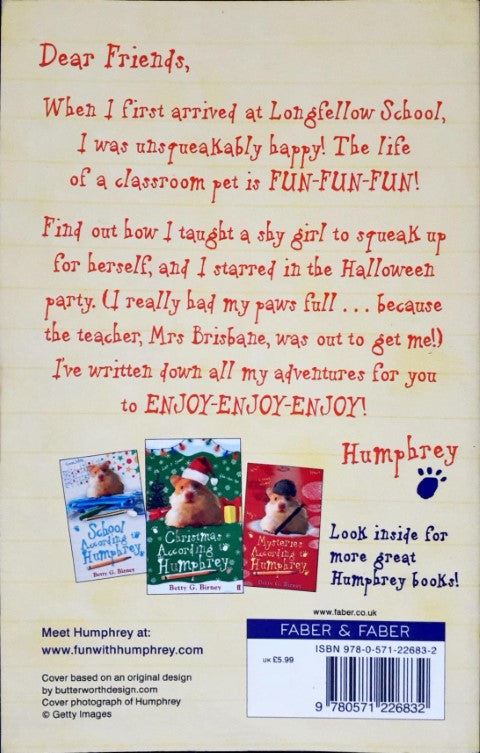 Dear Friends,
When I first arrived at Longfellow School,
I was unsqueakably happy! The life
of a classroom pet is FUN-FUN-FUN!
Find out how I taught a shy girl to squeak up
for herself, and I starred in the Halloween
party. (I really had my paws full . . . because
the teacher, Mrs Brisbane, was out to get me!)
I've written down all my adventures for you
to ENJOY-ENJOY-ENJOY!
Humphrey
School
According to
Humphrey
Betty G. Birney
Christmas
According to
Humphrey
Betty G. Birney
Mysteries
According to
Humphrey
Betty G. Birney
Look inside for
more great
Humphrey books!
www.faber.co.uk
Meet Humphrey at:
www.funwithhumphrey.com
Cover based on an original design
by butterworthdesign.com
Cover photograph of Humphrey
© Getty Images
FABER & FABER
ISBN 978-0-571-22683-2
UK £5.99
9 780571 226832